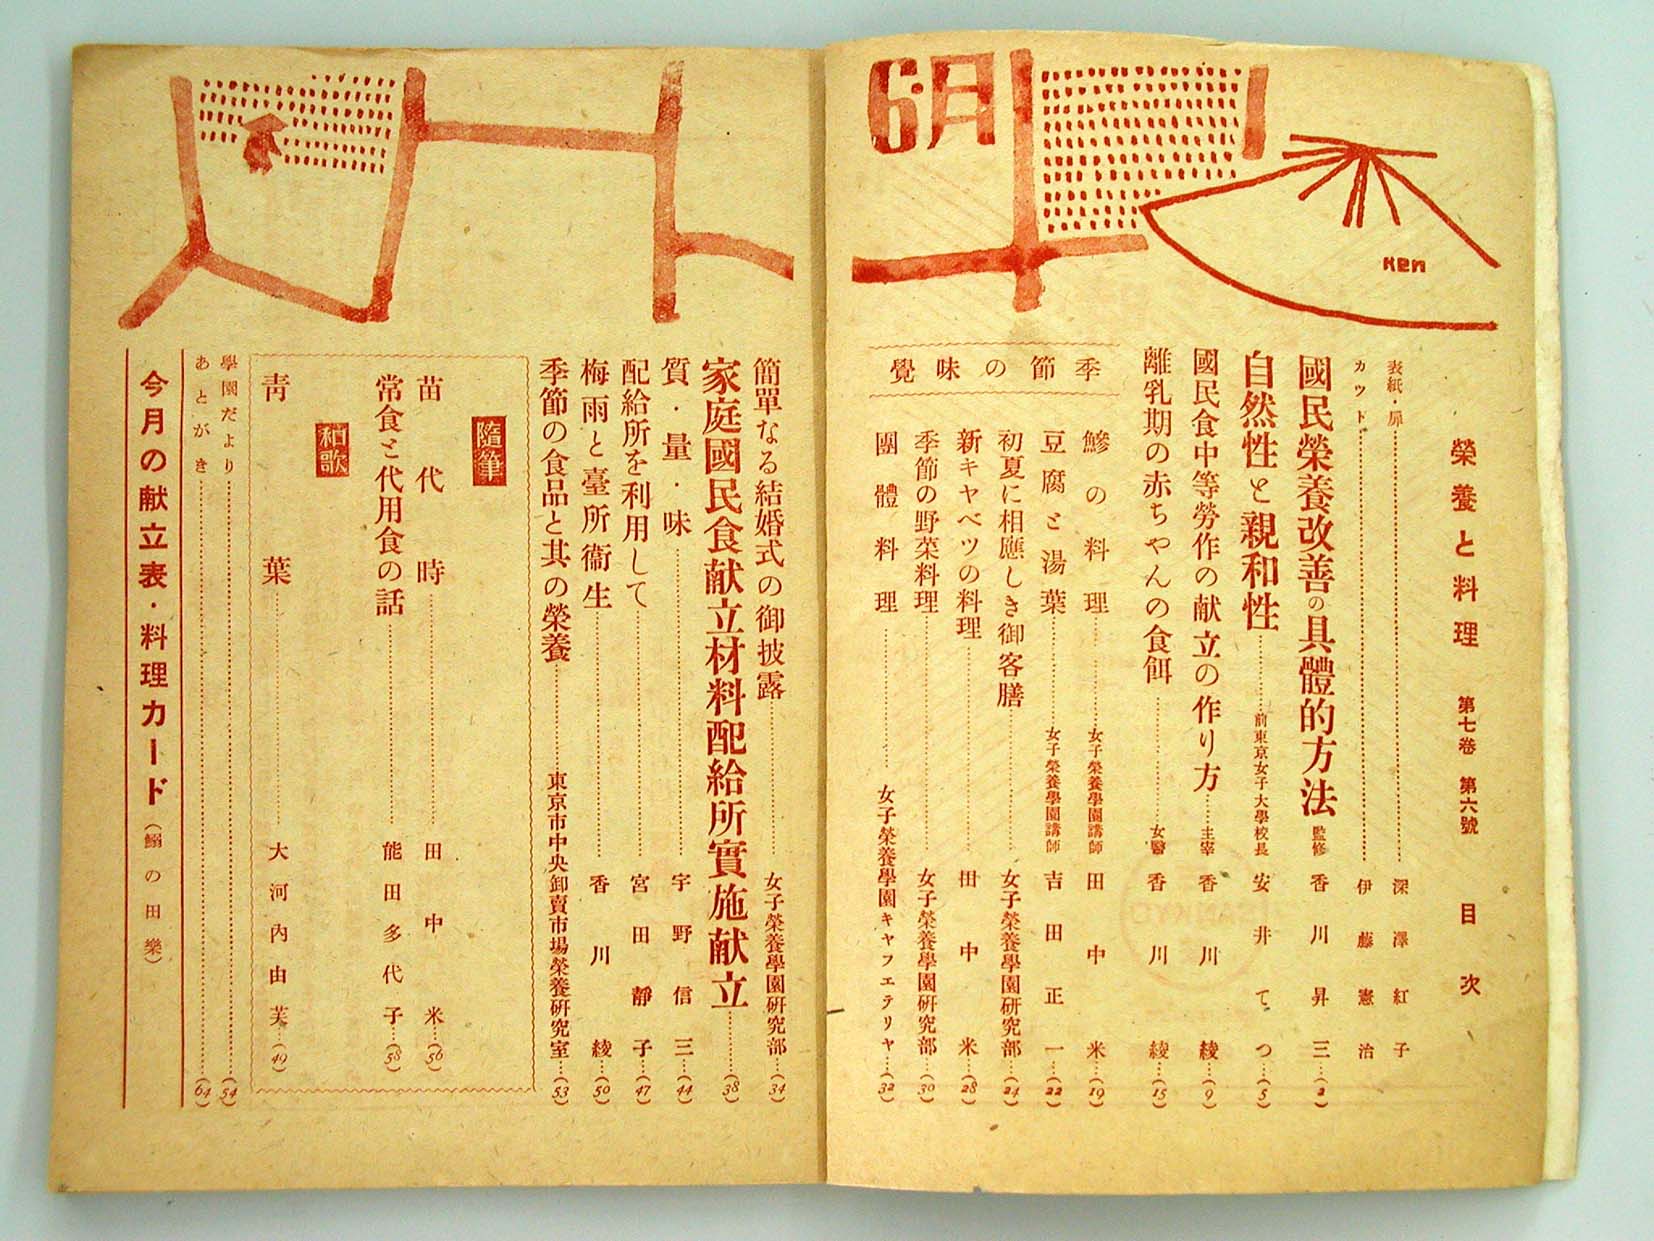 6月
Ken
榮養と料理 第七卷 第六號 目次
表紙・扉 深澤紅子
カット 伊藤憲治
國民榮養改善の具體的方法 監修 香川昇三 (2)
自然性と親和性 前東京女子大學校長 安井てつ (5)
國民食中等勞作の献立の作り方 主宰 香川綾 (9)
離乳期の赤ちやんの食餌 女醫 香川綾 (15)
季節の味覺
鯵の料理 女子榮養學園講師 田中米 (19)
豆腐と湯葉 女子榮養學園講師 吉田正一 (22)
初夏に相應しき御客膳 女子榮養學園硏究部 (24)
新キヤベツの料理 田中米 (28)
季節の野菜料理 女子榮養學園硏究部 (30)
團體料理 女子榮養學園キャフエテリヤ (32)
簡單なる結婚式の御披露 女子榮養學園硏究部 (34)
家庭國民食献立材料配給所實施献立 (38)
質・量・味 宇野信三 (44)
配給所を利用して 宮田靜子 (47)
梅雨と臺所衞生 香川綾 (50)
季節の食品と其の榮養 東京市中央卸賣市場榮養硏究室 (53)
隨筆
苗代時 田中米 (56)
常食と代用食の話 能田多代子 (58)
和歌
靑葉 大河內由芙 (49)
學園だより (54)
あとがき (64)
今月の献立表・料理カード (鰯の田樂)